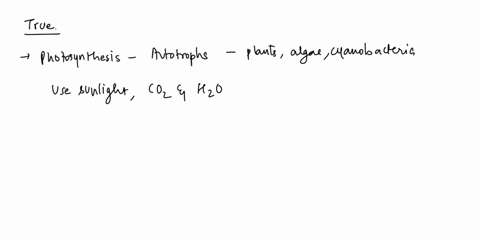 True.
→ Photosynthesis - Autotrophs - plants, algae, cyanobacteria
Use sunlight, CO₂ & H₂O